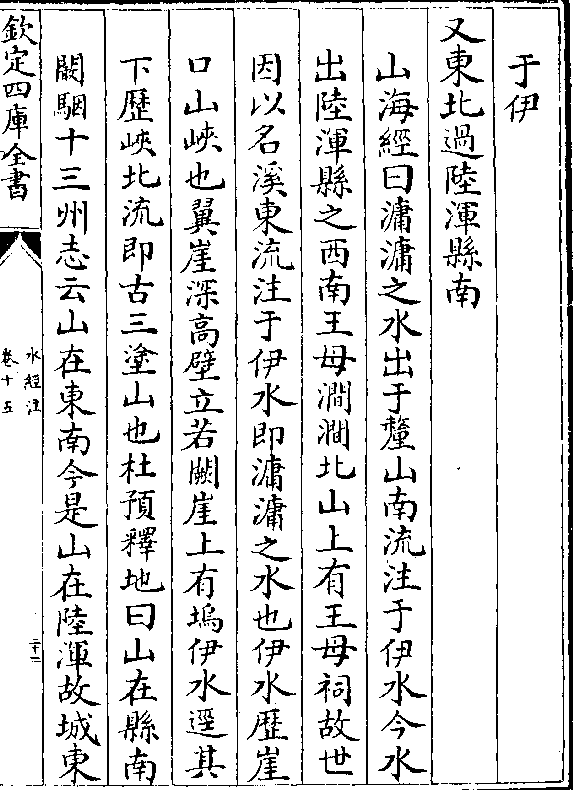 于伊
又東北過陸渾縣南
山海經曰滽滽之水出于釐山南流注于伊水今水
出陸渾縣之西南王母澗澗北山上有王母祠故世
因以名溪東流注于伊水即滽滽之水也伊水歷崖
口山峽也翼崖深高壁立若闕崖上有塢伊水逕其
下歷峽北流即古三塗山也杜預釋地曰山在縣南
闞駰十三州志云山在東南今是山在陸渾故城東
欽定四庫全書
水經注
卷十五